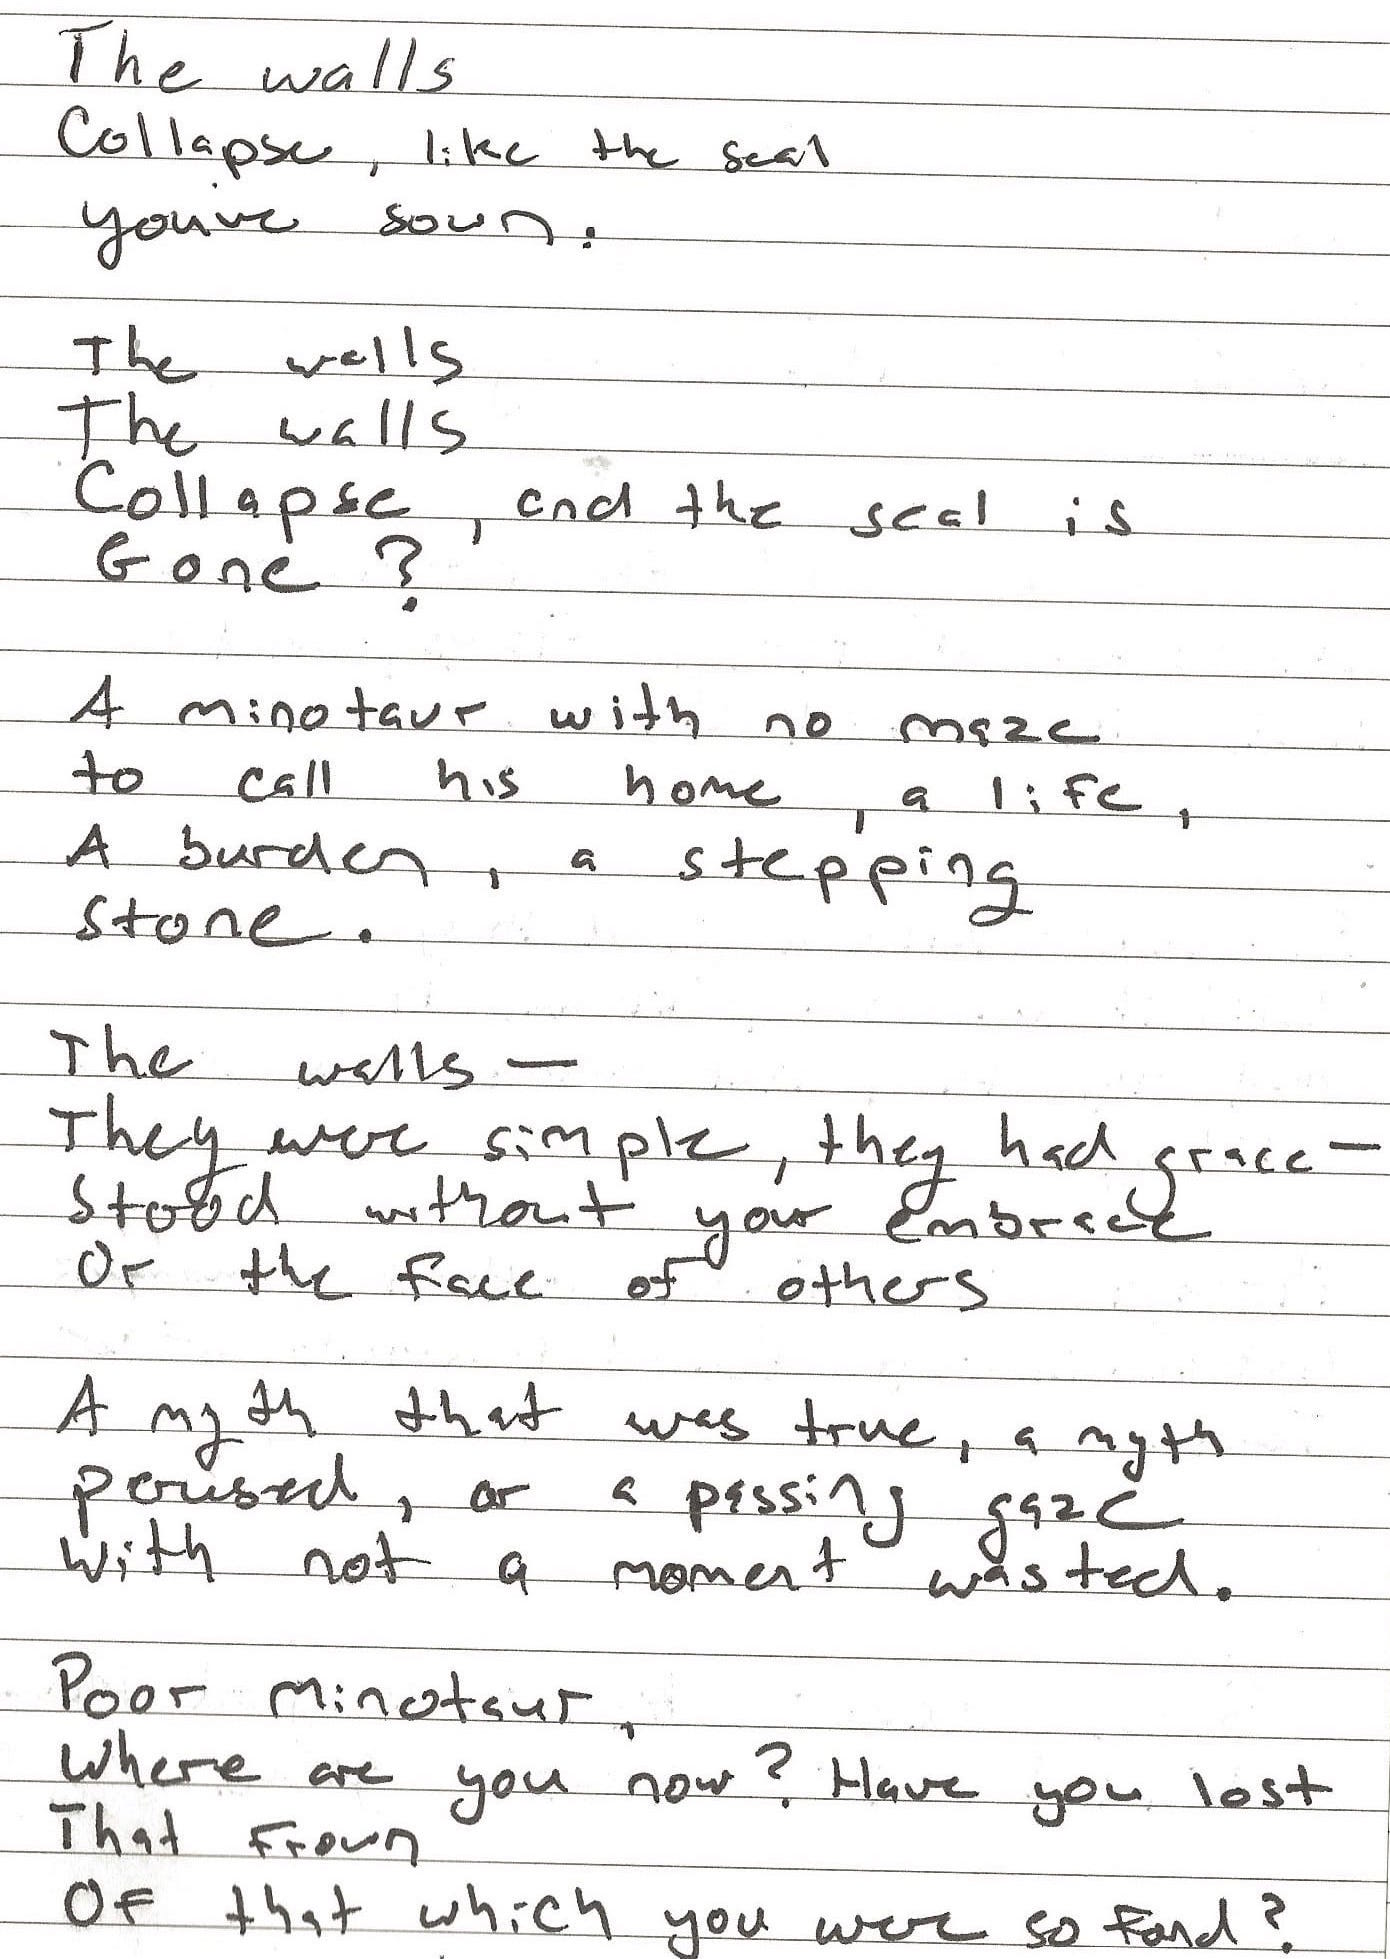 The walls
Collapse, like the seal
you've sown.
The walls
The walls
Collapse, and the seal is
Gone?
A minotaur with no maze
to call his home, a life,
A burden, a stepping
stone.
The walls —
They were simple, they had grace —
Stood without your embrace
Or the face of others
A myth that was true, a myth
perused, or a passing gaze
With not a moment wasted.
Poor Minotaur,
Where are you now? Have you lost
That frown
Of that which you were so fond?